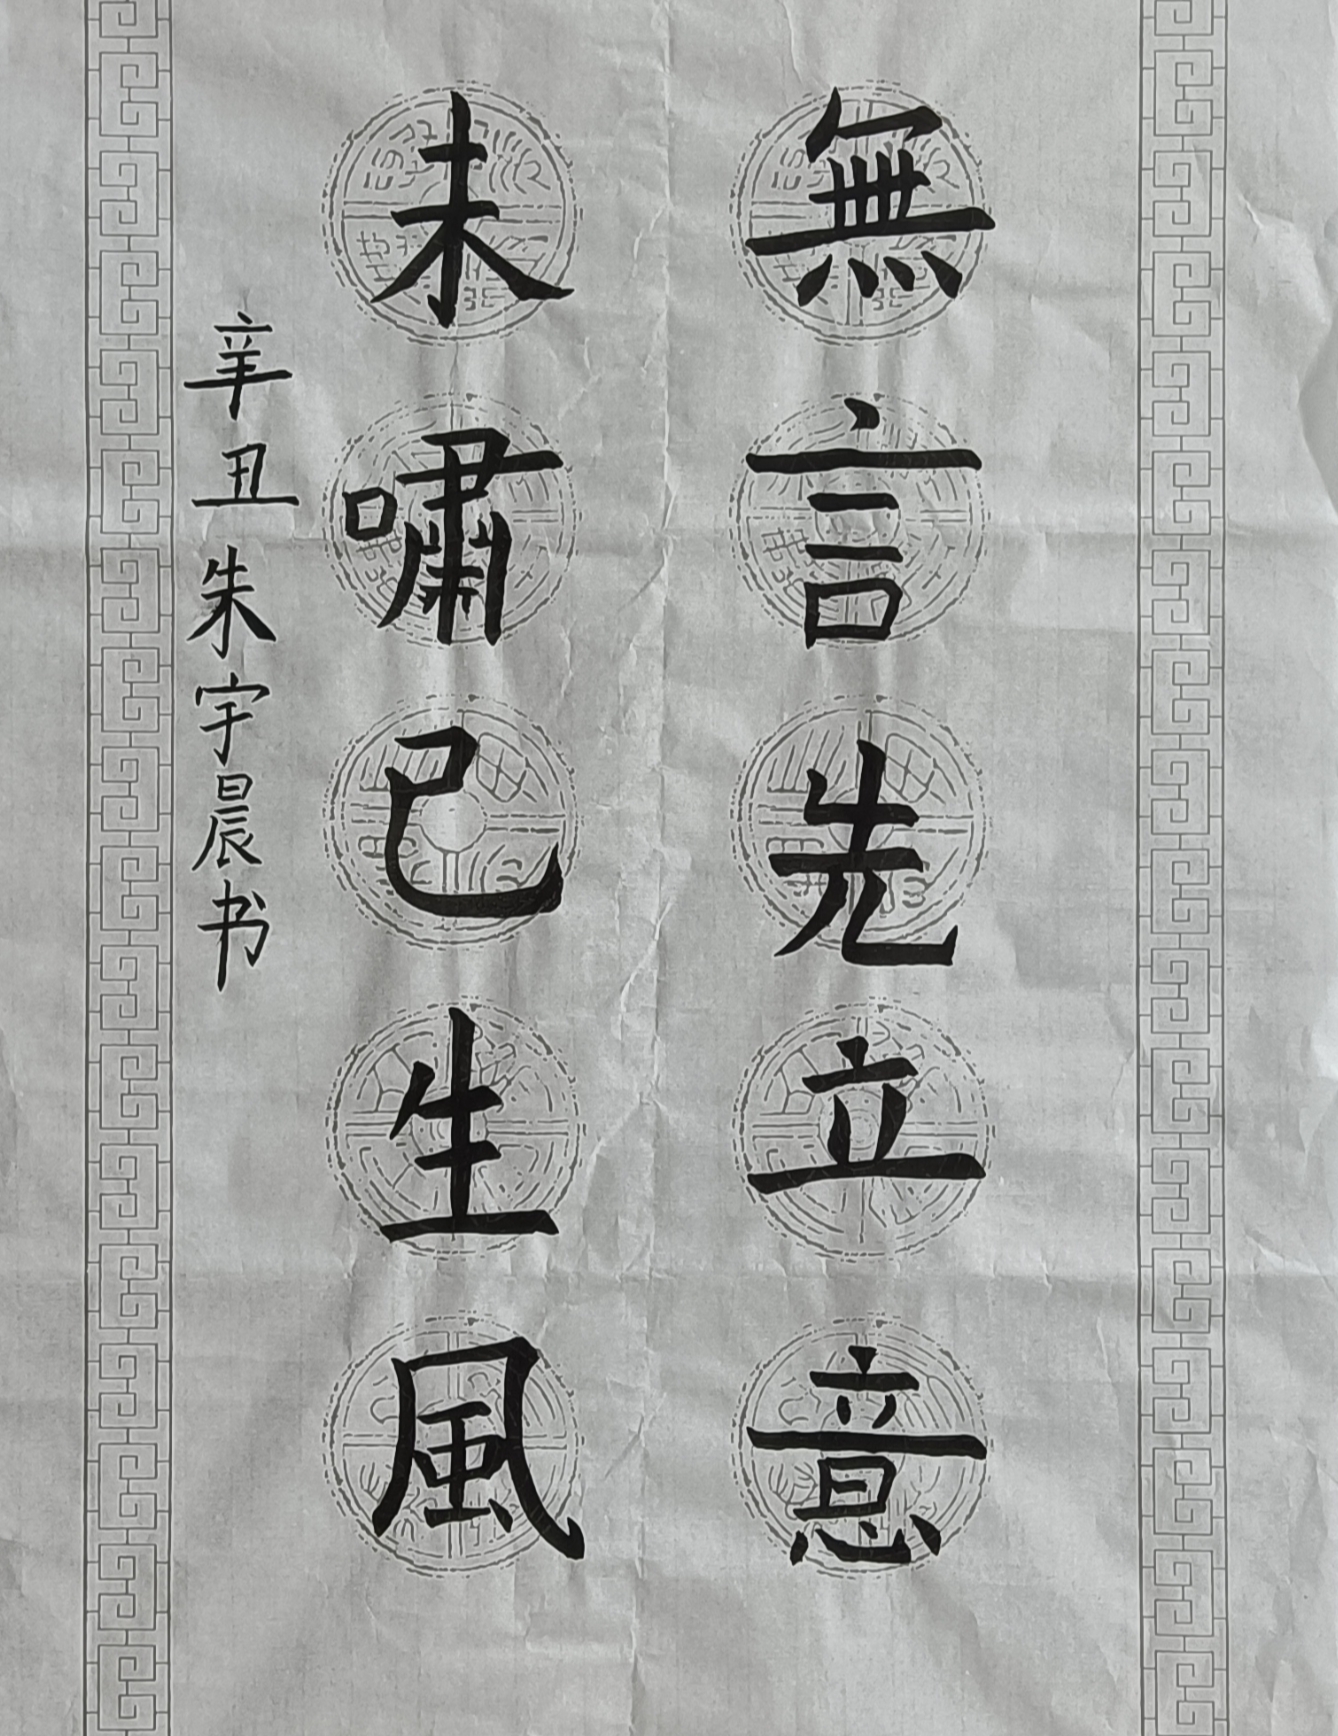 無言先立意
未嘯已生風
辛丑朱宇晨书